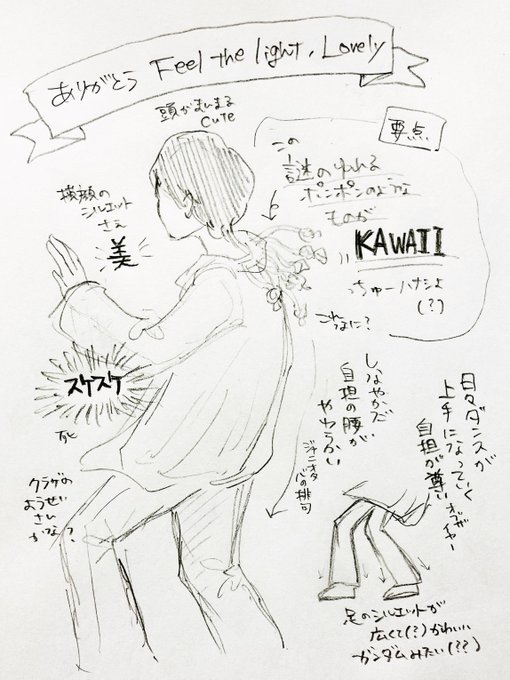 ありがとう Feel the light, Lovely
頭がまぃまる
cute
要点
この
謎のゆれる
ポンポンのような
ものが
KAWAII
っちゅーハナシよ
(?)
これなに?
横顔の
シルエット
さえ
美
スケスケ
死
クラゲの
ようせい
さん
かな?
しなやかだ
自担の腰が
やわらかい
ジャニオタ
バカの俳句
日々ダンスが
上手になっていく
自担が尊い
足のシルエットが
広くて(?)かわいい
ガンダムみたい(??)